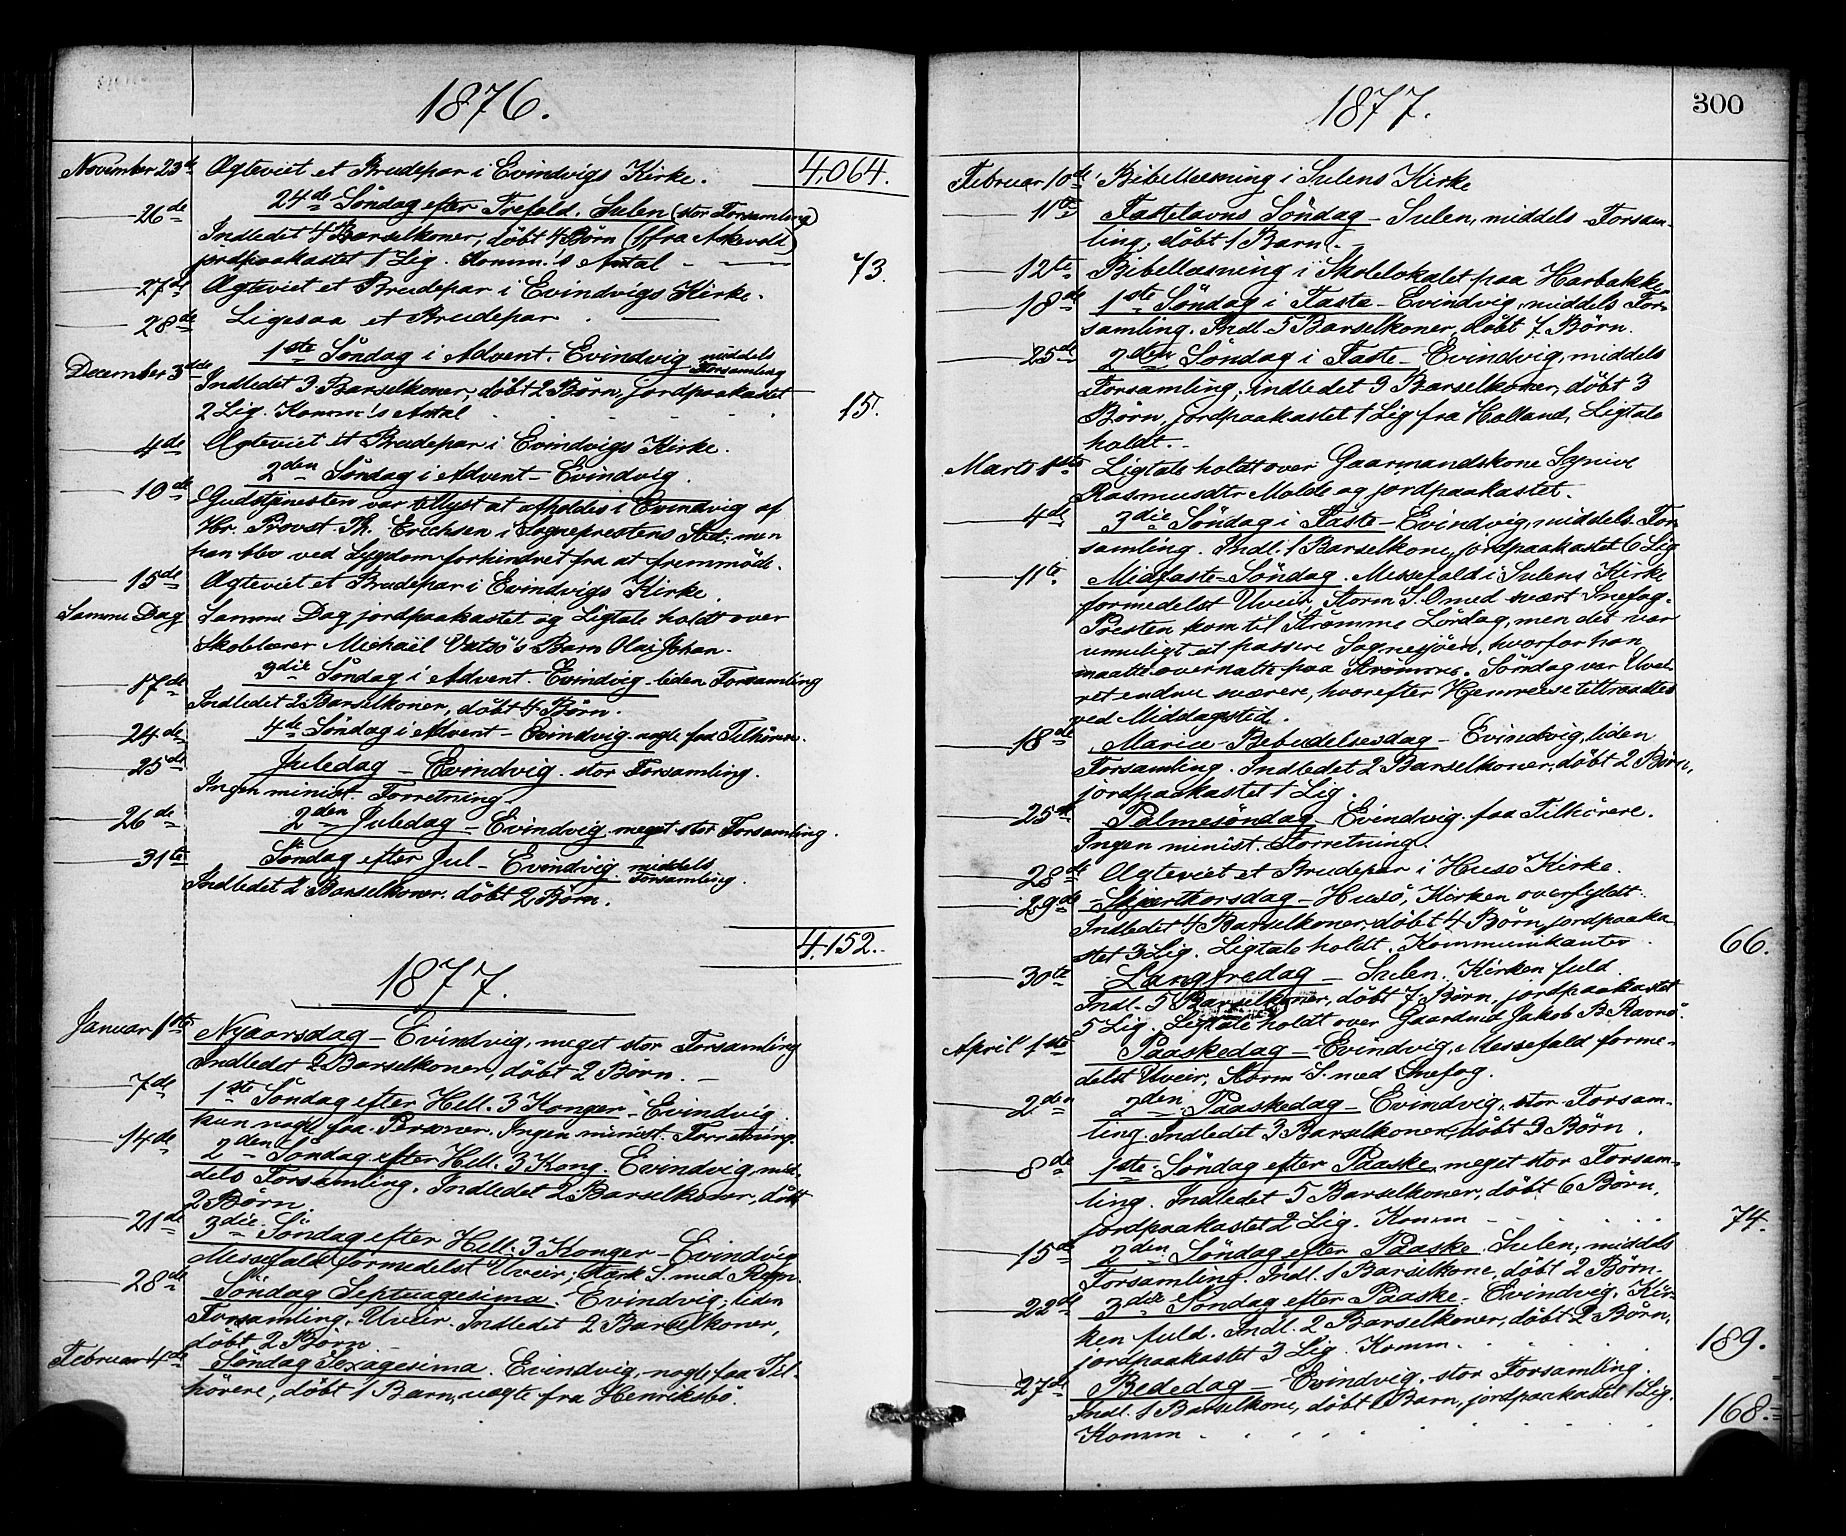 1876.
4,064.
November 23de Ægteviet et Brudepar i Evindvigs Kirke.
26de 24de Søndag efter Trefold. Sulen (stor Forsamling)
Indledet 4 Barselkoner, døbt 4 Børn (1 fra Askvold)
jordpaakastet 1 Lig. Komm.'s Antal 73.
27de Ægteviet et Brudepar i Evindvigs Kirke.
28de Ligesaa et Brudepar
December 3die 1ste Søndag i Advent. Evindvig middels Forsamling
Indledet 3 Barselkoner, døbt 2 Børn, jordpaakastet
2 Lig. Komm.'s Antal 15.
4de Ægteviet et Brudepar i Evindvigs Kirke.
2den Søndag i Advent – Evindvig.
10de Gudstjenesten var tillyst at afholdes i Evindvig af
Hr. Provst Th. Erichsen i Sogneprestens Sted; men
han blev ved Sygdom forhindret fra at fremmøde.
15de Ægteviet et Brudepar i Evindvigs Kirke.
Samme Dag Samme Dag jordpaakastet og Ligtale holdt over
Skolelærer Michaël Barn Olai Johan.
17de 3die Søndag i Advent. Evindvig liden Forsamling
Indledet 2 Barselkoner, døbt 4 Børn.
24de 4de Søndag i Advent – Evindvig nogle faa Tilhørere.
25de Juledag – Evindvig stor Forsamling.
Ingen minist. Forretning.
26de 2den Juledag – Evindvig meget stor Forsamling.
31te Søndag efter Jul – Evindvig middels Forsamling.
Indledet 2 Barselkoner. døbt 2 Børn.
4,152.
1877.
Januar 1ste Nyaarsdag – Evindvig, meget stor Forsamling
Indledet 2 Barselkoner, døbt 2 Børn.
7de 1ste Søndag efter Hell. 3 Konger – Evindvig.
kun nogle faa Personer. Ingen minist. Forretning.
14de 2den Søndag efter Hell. 3 Kong. Evindvig, mid-
dels Forsamling. Indledet 2 Barselkoner, døbt
2 Børn.
21de 3die Søndag efter Hell. 3 Konger – Evindvig
Messefald formedelst Uveir; stærk S. med Regn.
28de Søndag Septuagesima. Evindvig; liden
Forsamling. Uveir. Indledet 2 Barselkoner,
døbt 2 Børn
Februar 4de Søndag Sexagesima. Evindvig, nogle faa Til-
hørere, døbt 1 Barn, vægte fra Henriksbø.
1877.
300
Februar 10de Bibellæsning i Sulens Kirke
11te Fastelavns Søndag – Sulen, middels Forsam-
ling, døbt 1 Barn.
12te Bibellæsning i Skolelokalet paa Harbakke.
18de 1ste Søndag i Faste – Evindvig, middels For-
samling. Indl. 5 Barselkoner, døbt 7 Børn.
25de 2den Søndag i Faste – Evindvig, middels
Forsamling; indledet 3 Barselkoner, døbt 3
Børn, jordpaakastet 1 Lig fra Holland, Ligtale
holdt.
Marts 1ste Ligtale holdt over Gaarmandskone Synive
Rasmusdtr Molde og jordpaakastet.
4de 3die Søndag i Faste – Evindvig, middels For-
samling. Indl. 1 Barselkone, jordpaakastet 6 Lig
11te Midfaste-Søndag. Messefald i Sulens Kirke
formedelst Uveir, Storm S.O med svært Snefog.
Presten kom til Strømme Lørdag, men det var
umuligt at passere Sognesjøen, hvorfor han
maatte overnatte paa Strømme. Søndag var Uvei-
ret endnu sværere, hvorefter Hjemreise tiltraadtes
ved Middagstid.
18de Mariæ Bebudelsesdag – Evindvig, liden
Forsamling. Indledet 2 Barselkoner, døbt 2 Børn,
jordpaakastet 1 Lig.
25de Palmesøndag – Evindvig faa Tilhørere.
Ingen minist. Forretning.
28de Ægteviet et Brudepar i Husø Kirke.
29de Skjærthorsdag – Husø, Kirken overfyldt.
Indledet 4 Barselkoner, døbt 4 Børn, jordpaaka-
stet 3 Lig. Ligtale holdt. Kommunikanter 66.
30te Langfredag – Sulen. Kirken fuld.
Indl. 5 Barselkoner, døbt 7 Børn, jordpaakastet
5 Lig. Ligtale holdt over Gaardmd Jakob B. Ravnø.
April 1ste Paaskedag – Evindvig. Messefald forme-
delst Uveir, Storm S. med Snefog.
2den 2den Paaskedag – Evindvig, stor Forsam-
ling. Indledet 3 Barselkoner, døbt 3 Børn.
8de 1ste Søndag efter Paaske, meget stor Forsam-
ling. Indledet 5 Barselkoner, døbt 6 Børn,
jordpaakastet 2 Lig. Komm 74.
15de 2den Søndag efter Paaske. Sulen, middels
Forsamling. Indl. 1 Barselkone, døbt 2 Børn.
22de 3die Søndag efter Paaske – Evindvig. Kir-
ken fuld. Indl. 2 Barselkoner, døbt 2 Børn,
jordpaakastet 3 Lig. Komm. 189.
27de Bededag – Evindvig. stor Forsamling.
Indl. 1 Barselkone, døbt 1 Barn, jordpaakastet 1 Lig.
Komm 168.